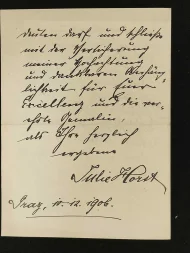 darf und schließe
mit der Versicherung
meiner Hochachtung
und dankbaren Anhäng-
lichkeit für Euer
Excellenz und die ver-
ehrte Gemalin,
als Ihre herzlich
ergebene
Julie Horst
Graz, 10. 12. 1906.